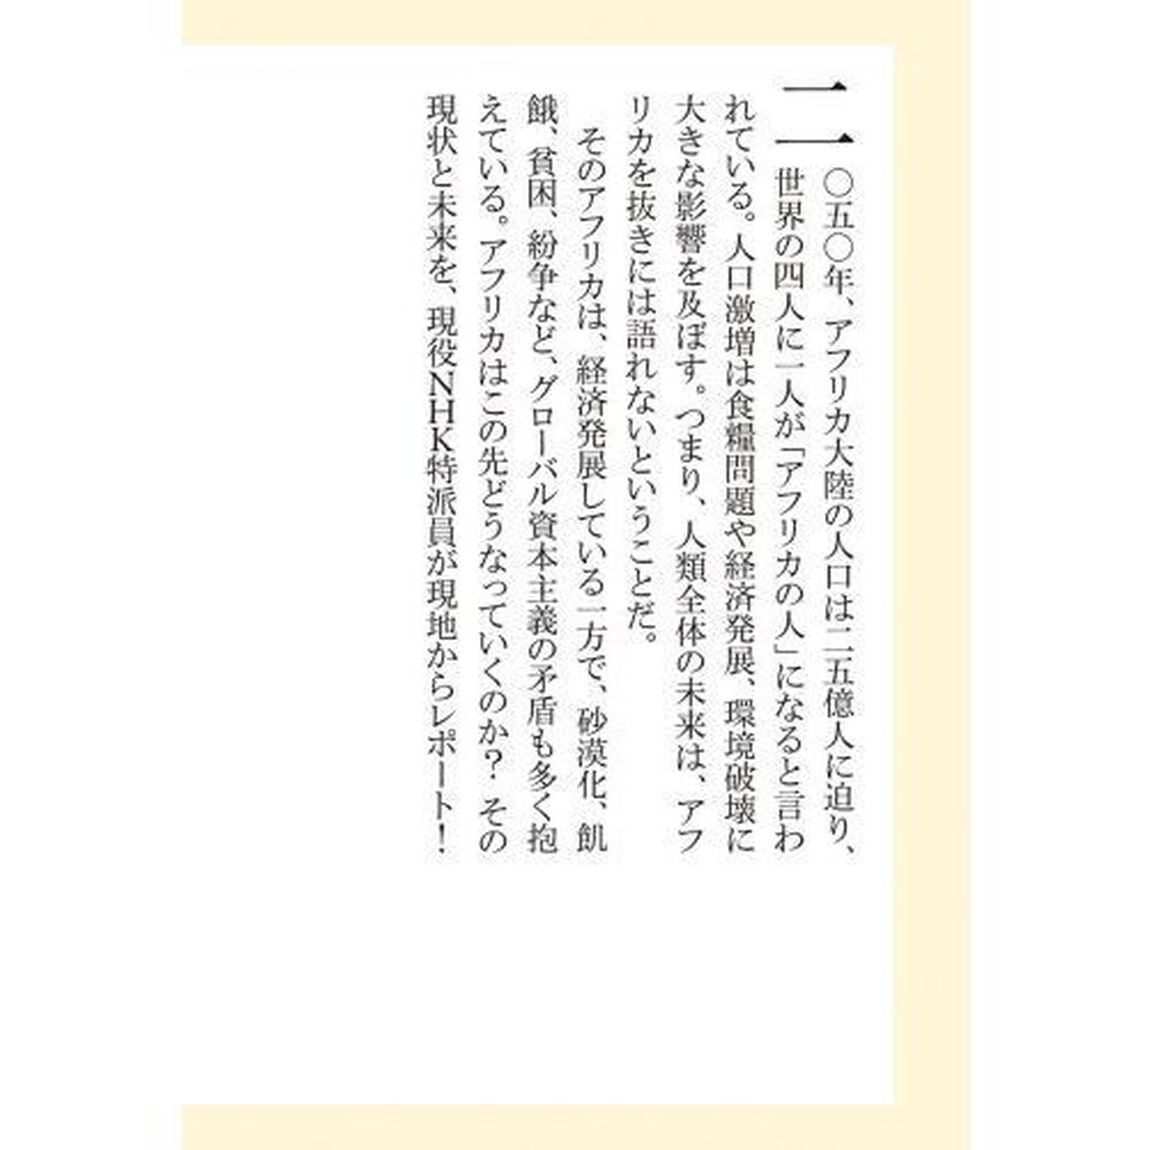 二〇五〇年、アフリカ大陸の人口は二五億人に迫り、
世界の四人に一人が「アフリカの人」になると言わ
れている。人口激増は食糧問題や経済発展、環境破壊に
大きな影響を及ぼす。つまり、人類全体の未来は、アフ
リカを抜きには語れないということだ。
そのアフリカは、経済発展している一方で、砂漠化、飢
餓、貧困、紛争など、グローバル資本主義の矛盾も多く抱
えている。アフリカはこの先どうなっていくのか? その
現状と未来を、現役NHK特派員が現地からレポート!